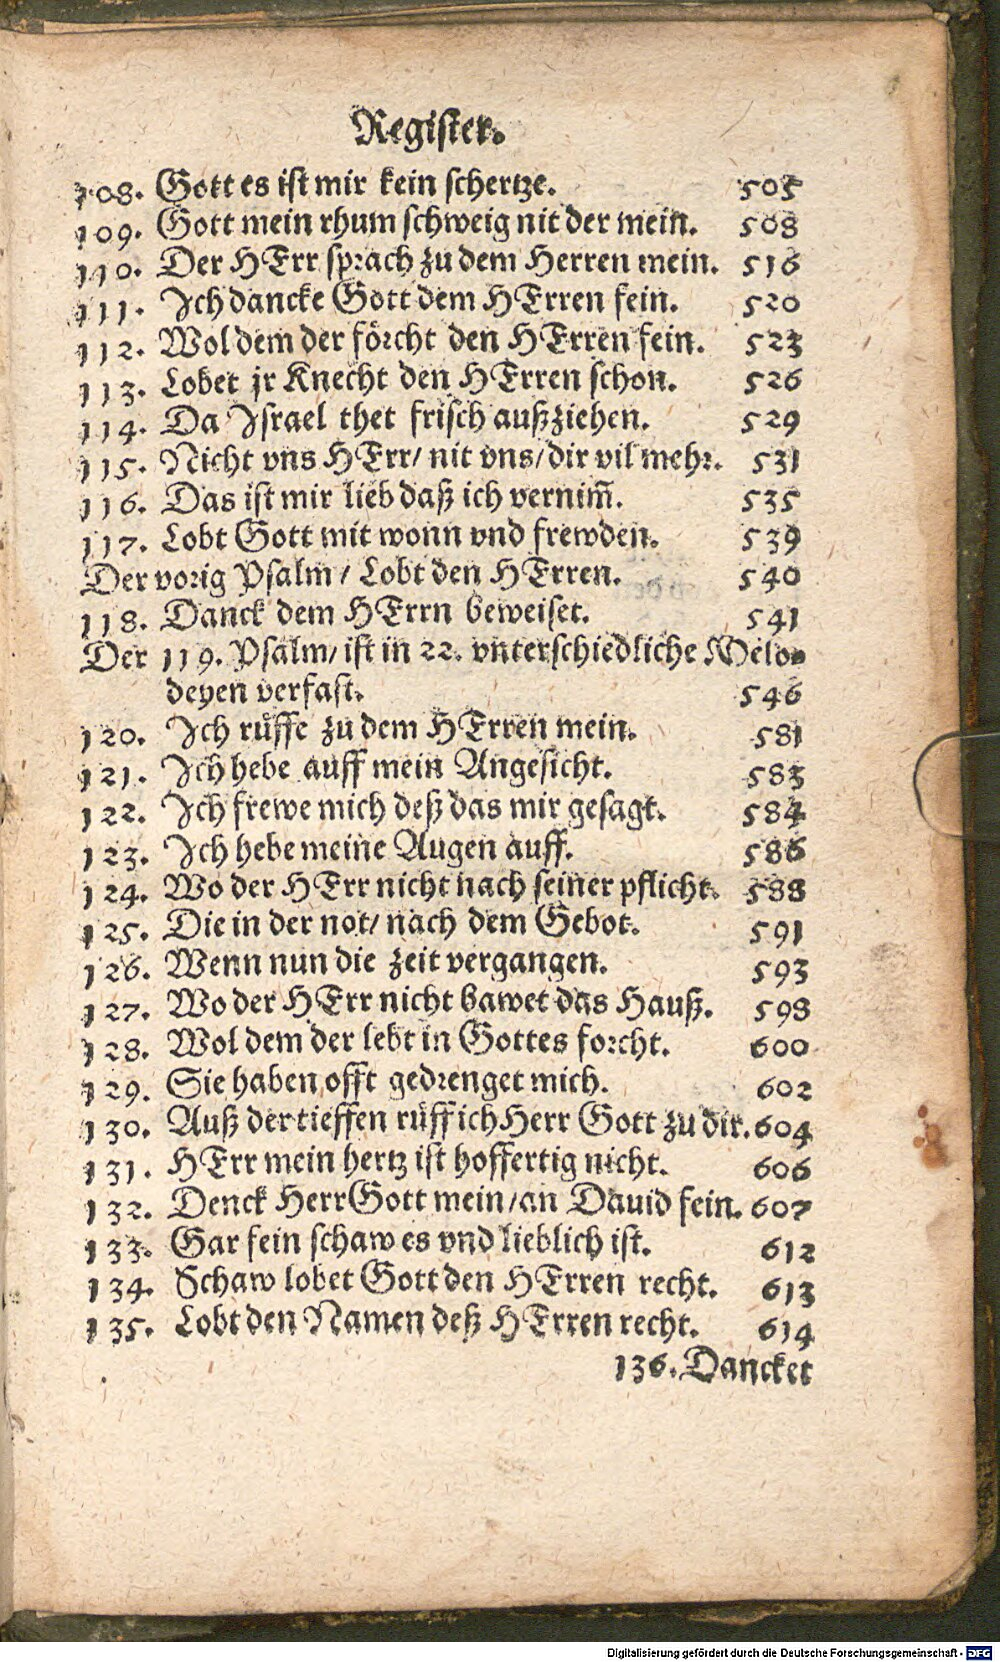 Register.
108. Gott es ist mir kein schertze. 505
109. Gott mein rhum schweig nit der mein. 508
110. Der HErr sprach zu dem Herren mein. 516
111. Ich dancke Gott dem HErren fein. 520
112. Wol dem der förcht den HErren fein. 523
113. Lobet jr Knecht den HErren schon. 526
114. Da Israel thet frisch außziehen. 529
115. Nicht vns HErr/ nit vns/ dir vil mehr. 531
116. Das ist mir lieb daß ich vernim̃. 535
117. Lobt Gott mit wonn vnd frewden. 539
Der vorig Psalm / Lobt den HErren. 540
118. Danck dem HErrn beweiset. 541
Der 119. Psalm/ ist in 22. vnterschiedliche Melo-
deyen verfast. 546
120. Ich rüffe zu dem HErren mein. 581
121. Ich hebe auff mein Angesicht. 583
122. Ich frewe mich deß das mir gesagt. 584
123. Ich hebe meine Augen auff. 586
124. Wo der HErr nicht nach seiner pflicht. 588
125. Die in der not/ nach dem Gebot. 591
126. Wenn nun die zeit vergangen. 593
127. Wo der HErr nicht bawet das Hauß. 598
128. Wol dem der lebt in Gottes forcht. 600
129. Sie haben offt gedrenget mich. 602
130. Auß der tieffen rüff ich Herr Gott zu dir. 604
131. HErr mein hertz ist hoffertig nicht. 606
132. Denck Herr Gott mein/ an Dauid fein. 607
133. Gar fein schaw es vnd lieblich ist. 612
134. Schaw lobet Gott den HErren recht. 613
135. Lobt den Namen deß HErren recht. 614
136. Dancket
Digitalisierung gefördert durch die Deutsche Forschungsgemeinschaft - DFG